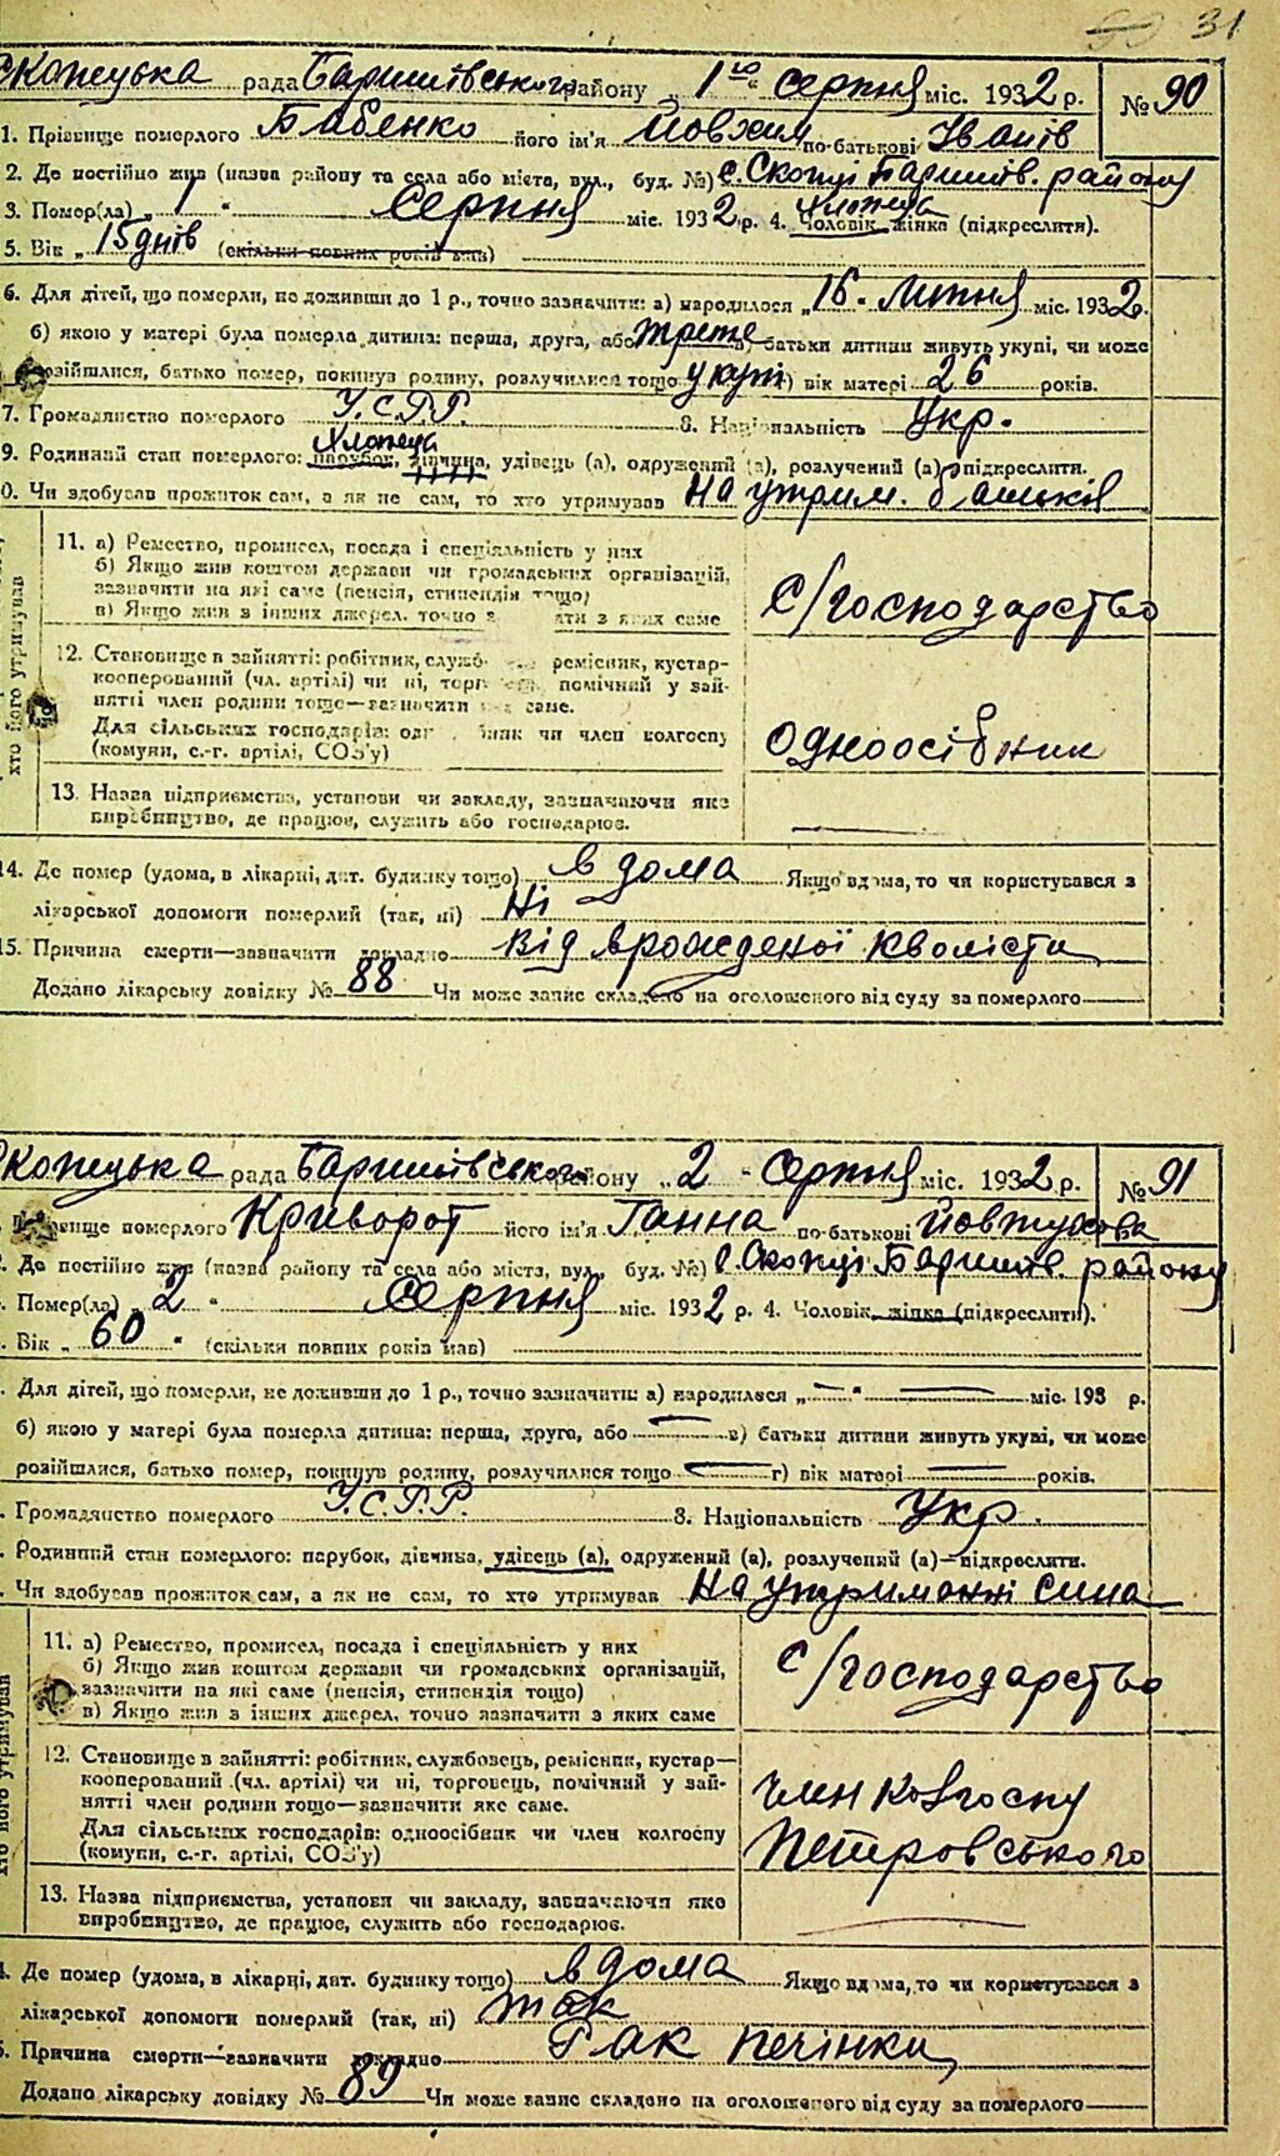 31
Скопецька рада Баришівського району „ 1го " серпня міс. 1932 р. № 90
1. Прізвище померлого Бабенко його ім'я Йовхим по-батькові Іванів
2. Де постійно жив (назва району та села або міста, вул., буд. №) с. Скопці Баришів. району
3. Помер(ла) „ 1 " Серпня міс. 1932 р. 4. Хлопець Чоловік, жінка (підкреслити).
5. Вік „ 15 днів (скільки повних років мав)
6. Для дітей, що померли, не доживши до 1 р., точно зазначити: а) народилося „ 16 - Липня міс. 1932 р.
б) якою у матері була померла дитина: перша, друга, або третє в) батьки дитини живуть укупі, чи може
розійшлися, батько помер, покинув родину, розлучилися тощо укупі г) вік матері 26 років.
7. Громадянство померлого У.С.Р.Р. 8. Національність Укр.
9. Родинний стан померлого: Хлопець парубок, дівчина, удівець (а), одружений (а), розлучений (а)—підкреслити.
0. Чи здобував прожиток сам, а як не сам, то хто утримував На утрим. батьків
хто його утримував
11. а) Ремество, промисел, посада і спеціяльність у них
б) Якщо жив коштом держави чи громадських організацій,
зазначити на які саме (пенсія, стипендія тощо)
в) Якщо жив з інших джерел, точно з яти з яких саме
С/господарство
12. Становище в зайнятті: робітник, служб ремісник, кустар-
кооперований (чл. артілі) чи ні, торг помічний у зай-
нятті член родини тощо—зазначити яке саме.
Для сільських господарів: одн бник чи член колгоспу
(комуни, с.-г. артілі, СОЗ'у)
Одноосібник
13. Назва підприємства, установи чи закладу, зазначаючи яке
виробництво, де працює, служить або господарює.
14. Де помер (удома, в лікарні, дит. будинку тощо) в дома Якщо вдома, то чи користувався з
лікарської допомоги померлий (так, ні) Ні
15. Причина смерти—зазначити докладно Від врожденої кволісти
Додано лікарську довідку № 88 Чи може запис складено на оголошеного від суду за померлого
Скопецька рада Баришівського району „ 2 - Серпня міс. 1932 р. № 91
Прізвище померлого Криворот його ім'я Ганна по-батькові Йовтухова
. Де постійно жив (назва району та села або міста, вул., буд. №) с. Скопці Баришів. району
. Помер(ла) „ 2 " Серпня міс. 1932 р. 4. Чоловік, жінка (підкреслити).
. Вік „ 60 " (скільки повних років мав)
. Для дітей, що померли, не доживши до 1 р., точно зазначити: а) народилася „ — " — міс. 193 р.
б) якою у матері була померла дитина: перша, друга, або — в) батьки дитини живуть укупі, чи може
розійшлися, батько помер, покинув родину, розлучилися тощо — г) вік матері — років.
. Громадянство померлого У.С.Р.Р. 8. Національність Укр.
. Родинний стан померлого: парубок, дівчина, удівець (а), одружений (а), розлучений (а)—підкреслити.
. Чи здобував прожиток сам, а як не сам, то хто утримував На утриманні сина
хто його утримував
11. а) Ремество, промисел, посада і спеціяльність у них
б) Якщо жив коштом держави чи громадських організацій,
зазначити на які саме (пенсія, стипендія тощо)
в) Якщо жив з інших джерел, точно зазначити з яких саме
С/господарство
12. Становище в зайнятті: робітник, службовець, ремісник, кустар—
кооперований (чл. артілі) чи ні, торговець, помічний у зай-
нятті член родини тощо—зазначити яке саме.
Для сільських господарів: одноосібник чи член колгоспу
(комуни, с.-г. артілі, СОЗ'у)
член колгоспу
Петровського
13. Назва підприємства, установи чи закладу, зазначаючи яке
виробництво, де працює, служить або господарює.
. Де помер (удома, в лікарні, дит. будинку тощо) в дома Якщо вдома, то чи користувався з
лікарської допомоги померлий (так, ні) так
. Причина смерти—зазначити докладно Рак печінки
Додано лікарську довідку № 89 Чи може запис складено на оголошеного від суду за померлого